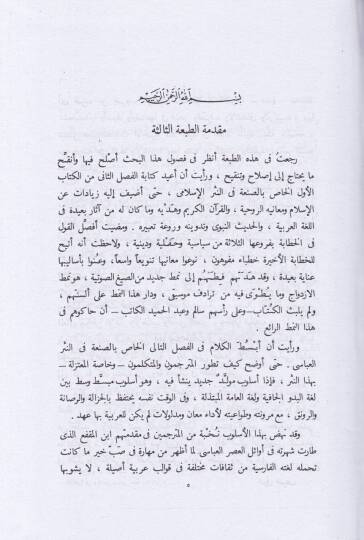 بسم الله الرحمن الرحيم
مقدمة الطبعة الثالثة
رجعت فى هذه الطبعة أنظر فى فصول هذا البحث أصلح فيها وأنقّح
ما يحتاج إلى إصلاح وتنقيح ، ورأيت أن أعيد كتابة الفصل الثانى من الكتاب
الأول الخاص بالصنعة فى النثر الإسلامى ، حتى أضيف إليه زيادات عن
الإسلام ومعانيه الروحية ، والقرآن الكريم وهَدْيه وما كان له من آثار بعيدة فى
اللغة العربية ، والحديث النبوى وتدوينه وروعة تعبيره . ومضيت أفصّل القول
فى الخطابة بفروعها الثلاثة من سياسية وحفلية ودينية ، ولاحظت أنه أتيح
للخطابة الأخيرة خطباء مفوهون ، نوعوا معانيها تنويعاً واسعاً، وعُنُوا بأساليبها
عناية بعيدة ، وقد هدتهم فطنتهم إلى نمط جديد من الصيغ الصوتية ، هو نمط
الازدواج وما يُطْوَى فيه من ترادف موسيقى ، ودار هذا النمط على ألسنتهم ،
ولم يلبث الكُتّاب – وعلى رأسهم سالم وعبد الحميد الكاتب – أن حاكوهم فى
هذا النمط الرائع .
ورأيت أن أبسُط الكلام فى الفصل التالى الخاص بالصنعة فى النثر
العباسى . حتى أوضح كيف تطور المترجمون والمتكلمون – وخاصة المعتزلة –
بهذا النثر ، فإذا أسلوب مولَّد جديد ينشأ فيه ، وهو أسلوب مبسَّط وسط بين
لغة البدو الجافية ولغة العامة المبتذلة ، وفى الوقت نفسه يحتفظ بالجزالة والرصانة
والرونق ، مع مرونته وطواعيته لأداء معان ومدلولات لم يكن للعربية بها عهد .
وقد نهض بهذا الأسلوب نُخْبة من المترجمين فى مقدمتهم ابن المقفع الذى
طارت شهرته فى أوائل العصر العباسى لما أظهر من مهارة فى صَبّ خير ما كانت
تحمله لغته الفارسية من ثقافات مختلفة فى قوالب عربية أصيلة ، لا يشوبها
٥